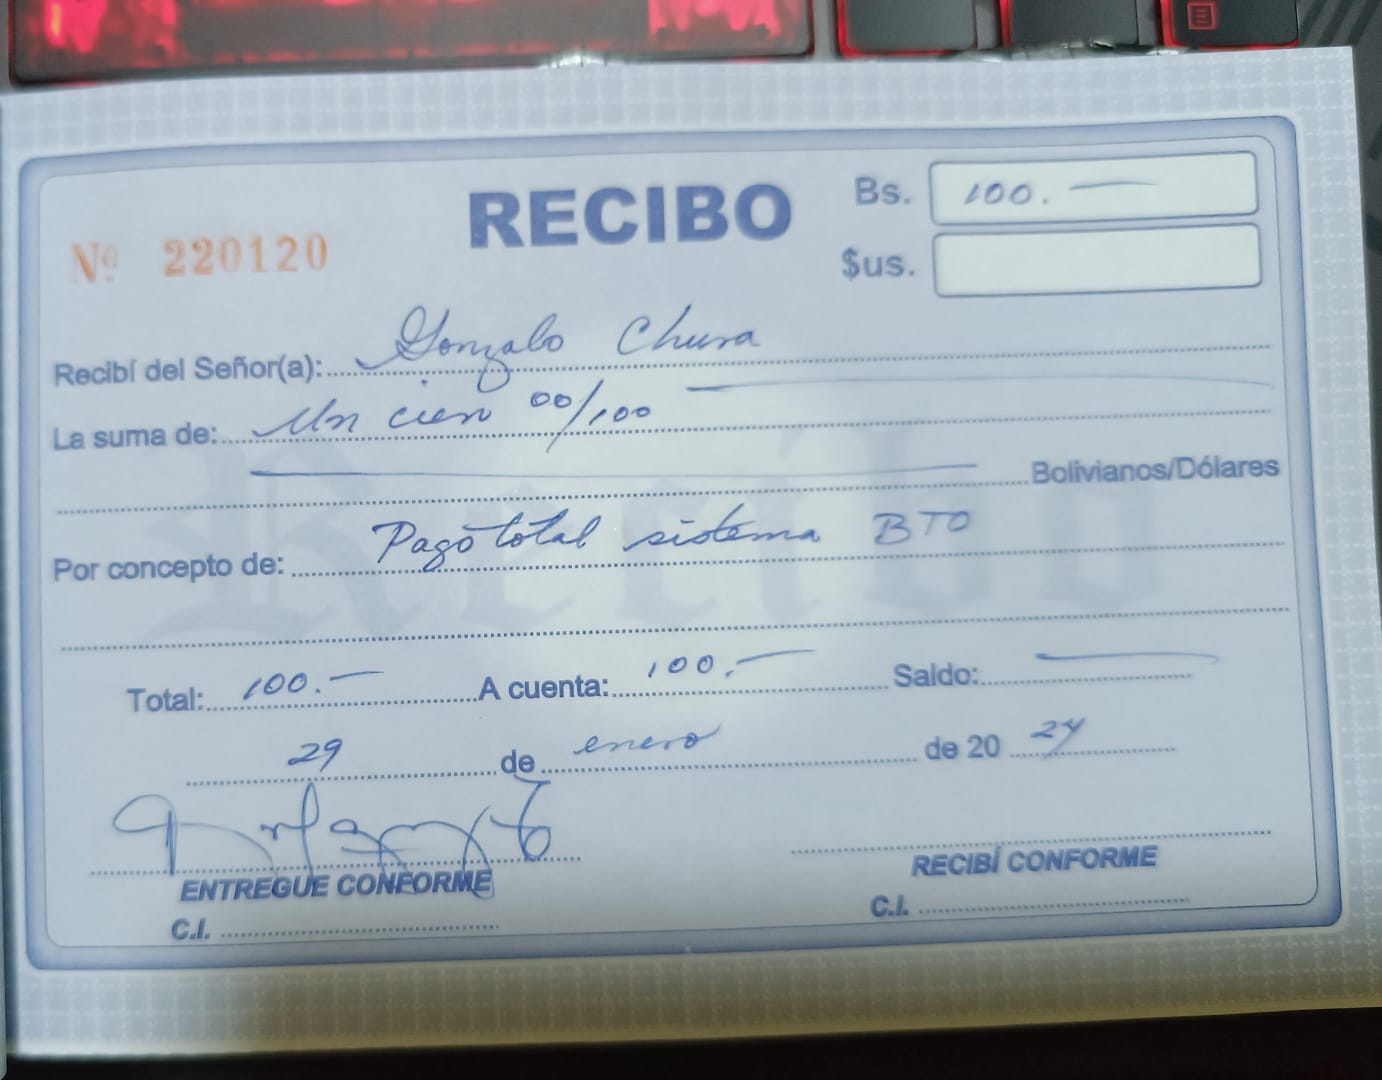 RECIBO
Bs. 100.—
Nº 220120
$us.
Recibí del Señor(a): Gonzalo Chura
La suma de: Un cien 00/100
Bolivianos/Dólares
Por concepto de: Pago total sistema BTO
Total: 100.— A cuenta: 100.— Saldo: —
29 de enero de 20 24
ENTREGUE CONFORME
RECIBÍ CONFORME
C.I.
C.I.
Recibo